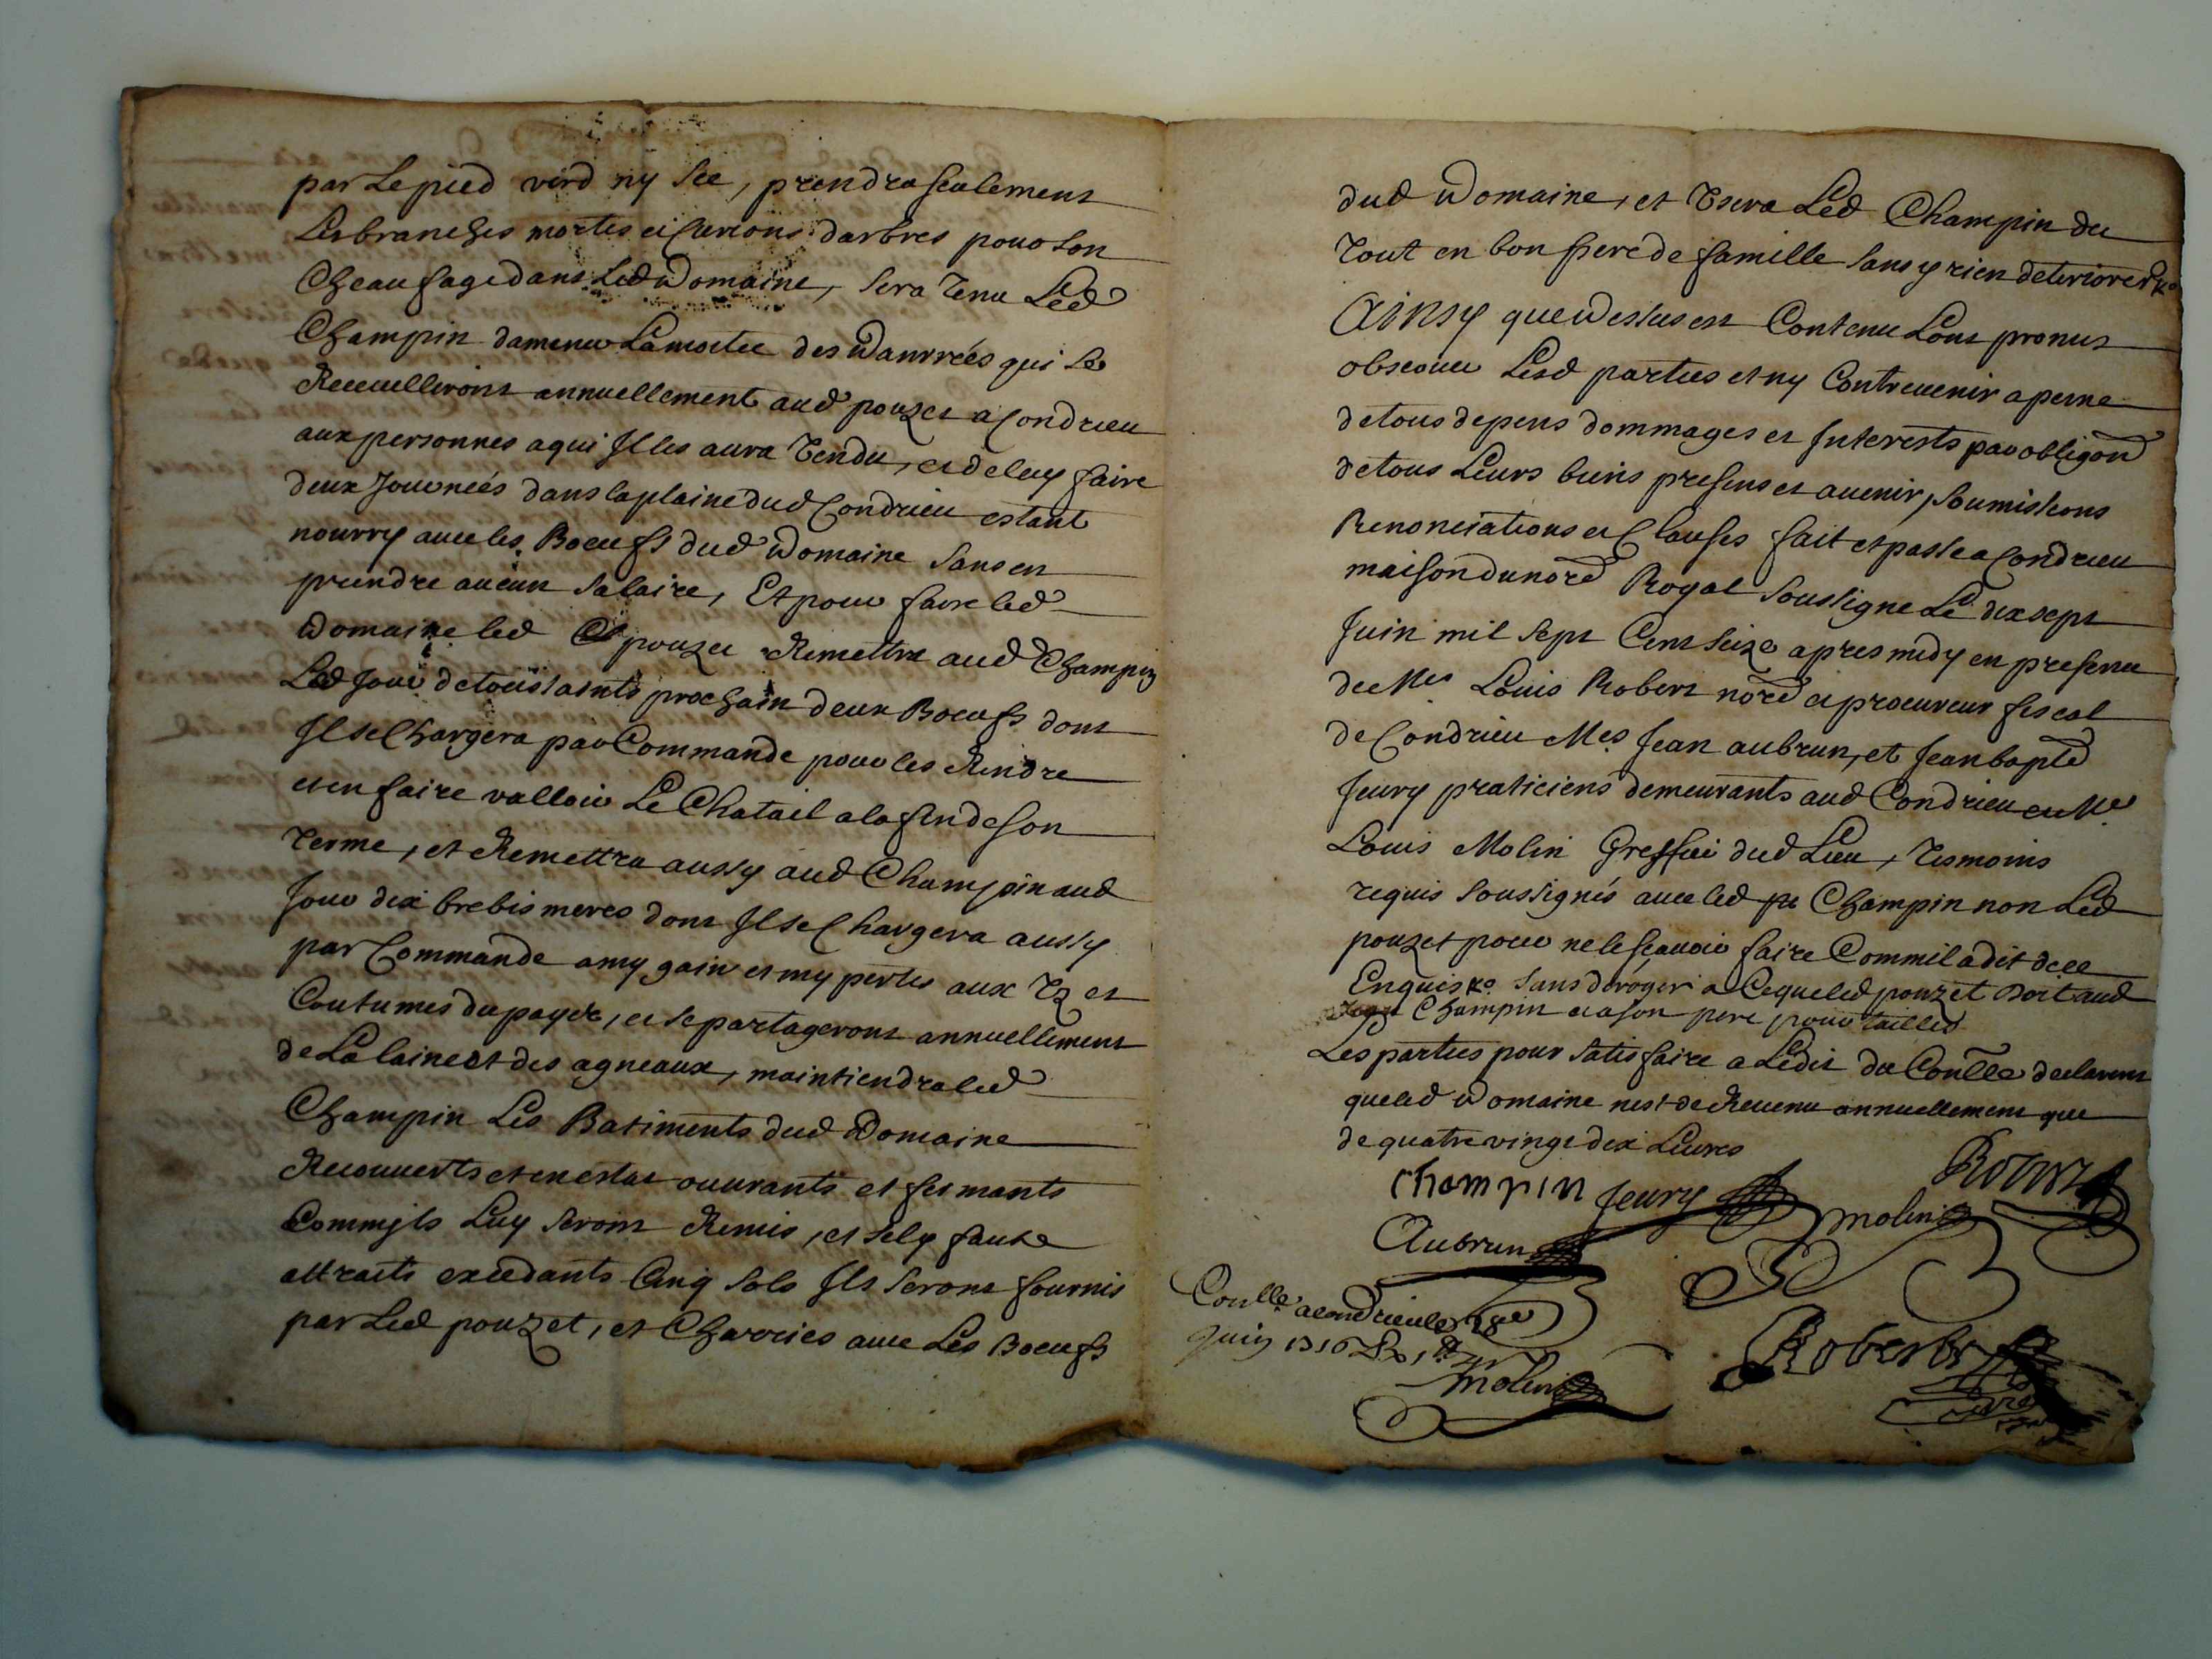 par Le pied verd ny sec, prendra seulement
Les branches mortes et d'arbres pour son
Cheaufage dans Led Domaine, sera tenu Led
Champin damener La moitee des danrrées qui se
Recueilliront annuellement aud pouzet a Condrieu
aux personnes a qui Il les aura vendu, et de luy faire
deux Journées dans la plaine dud Condrieu estant
nourry avec les Boeufs dud Domaine sans en
prendre aucun salaire, Et pour faire led
Domaine led pouzet Remettra aud Champin
Led Jour de toussaints prochain deux Boeufs dont
Il se Chargera par Commande pour les Rendre
et en faire valloir Le Chatail a la fin de son
terme, et Remettra aussy aud Champin aud
Jour dix brebis meres dont Il se Chargera aussy
par Commande a my gain et my pertes aux Uz et
Coutumes du payér, et se partageront annuellement
de La laine et des agneaux, maintiendra led
Champin Les Batiments dud Domaine
Recouverts et en estat ouvrants et fermants
Comm jls Luy seront Remis, et sely faute
attraits exedants Cinq sols Ils seront fournis
par Led pouzet, et Charriés avec Les Boeufs
dud Domaine, et Usera Led Champin du
tout en bon pere de famille sans y rien deteriorer
Ainsy que dessus est Contenu Lont promis
observer Lesd parties et ny Contrevenir a peine
de tous depens dommages et Interests par obligaon
de tous Leurs biens presens et avenir, soumissions
Renonciations et Clauses fait et passe a Condrieu
maison du nore Royal soussigne Le dix sept
Juin mil sept Cent seize apres midy en presence
de Me Louis Robert nore et procureur fiscal
de Condrieu Mes Jean aubrun, et Jean bapte
Jeury praticiens demeurants aud Condrieu et Me
Louis Molin Greffier dud Lieu, tesmoins
requis soussignés avec led Champin non Led
pouzet pour ne le sçavoir faire Comm il a dit de ce
Enquis sans deroger a Ce que led pouzet doit aud
Champin et a son pere pour tailles
Les parties pour satisfaire a Ledit du Conlle declarent
que led Domaine nest de Revenu annuellement que
de quatre vingt dix Livres
Champin Jeury
Aubrun molin
Conlle a condrieu le 18e
Juin 1716
Molin
Robert